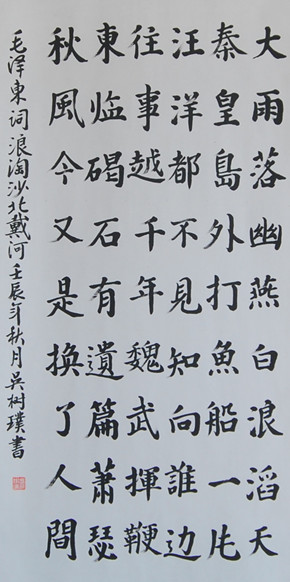 大雨落幽燕白浪滔天
秦皇島外打魚船一片
汪洋都不見知向誰边
往事越千年魏武揮鞭
東临碣石有遺篇蕭瑟
秋風今又是換了人間
毛泽東词浪淘沙北戴河壬辰年秋月吴树璞書